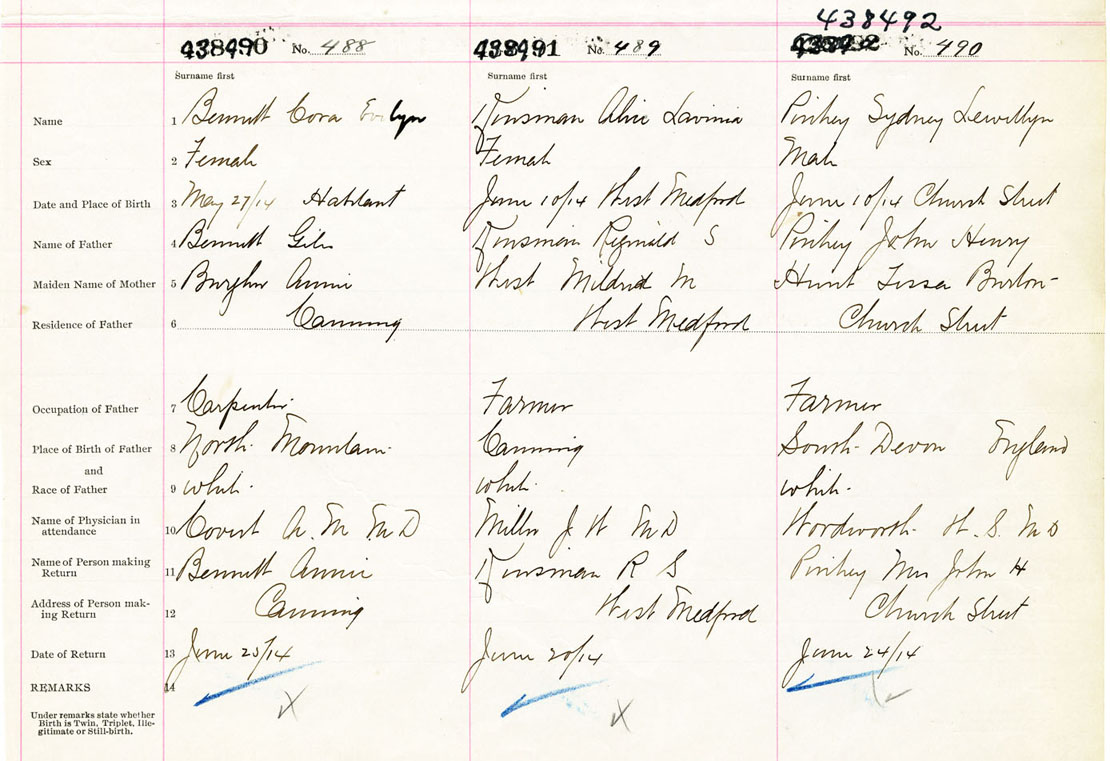 438492
438490 No. 488 438491 No. 489 No. 490
Surname first Surname first Surname first
Name 1 Bennett Cora Evelyn Kinsman Alice Lavinia Pinkey Sydney Lewillyn
Sex 2 Female Female Male
Date and Place of Birth 3 May 27/14 Habitant June 10/14 West Medford June 10/14 Church Street
Name of Father 4 Bennett Giles Kinsman Reginald S Pinkey John Henry
Maiden Name of Mother 5 Annie West Mildred M Hunt Tessa Burton
Residence of Father 6 Canning West Medford Church Street
Occupation of Father 7 Carpenter Farmer Farmer
Place of Birth of Father 8 North Mountain Canning South Devon England
and
Race of Father 9 white white white
Name of Physician in
attendance 10 Covert A. M. M D Miller J W M D Wordworth H. S. M D
Name of Person making
Return 11 Bennett Annie Kinsman R S Pinkey Mrs John H
Address of Person mak-
ing Return 12 Canning West Medford Church Street
Date of Return 13 June 25/14 June 20/14 June 24/14
REMARKS 14
Under remarks state whether
Birth is Twin, Triplet, Ille-
gitimate or Still-birth.